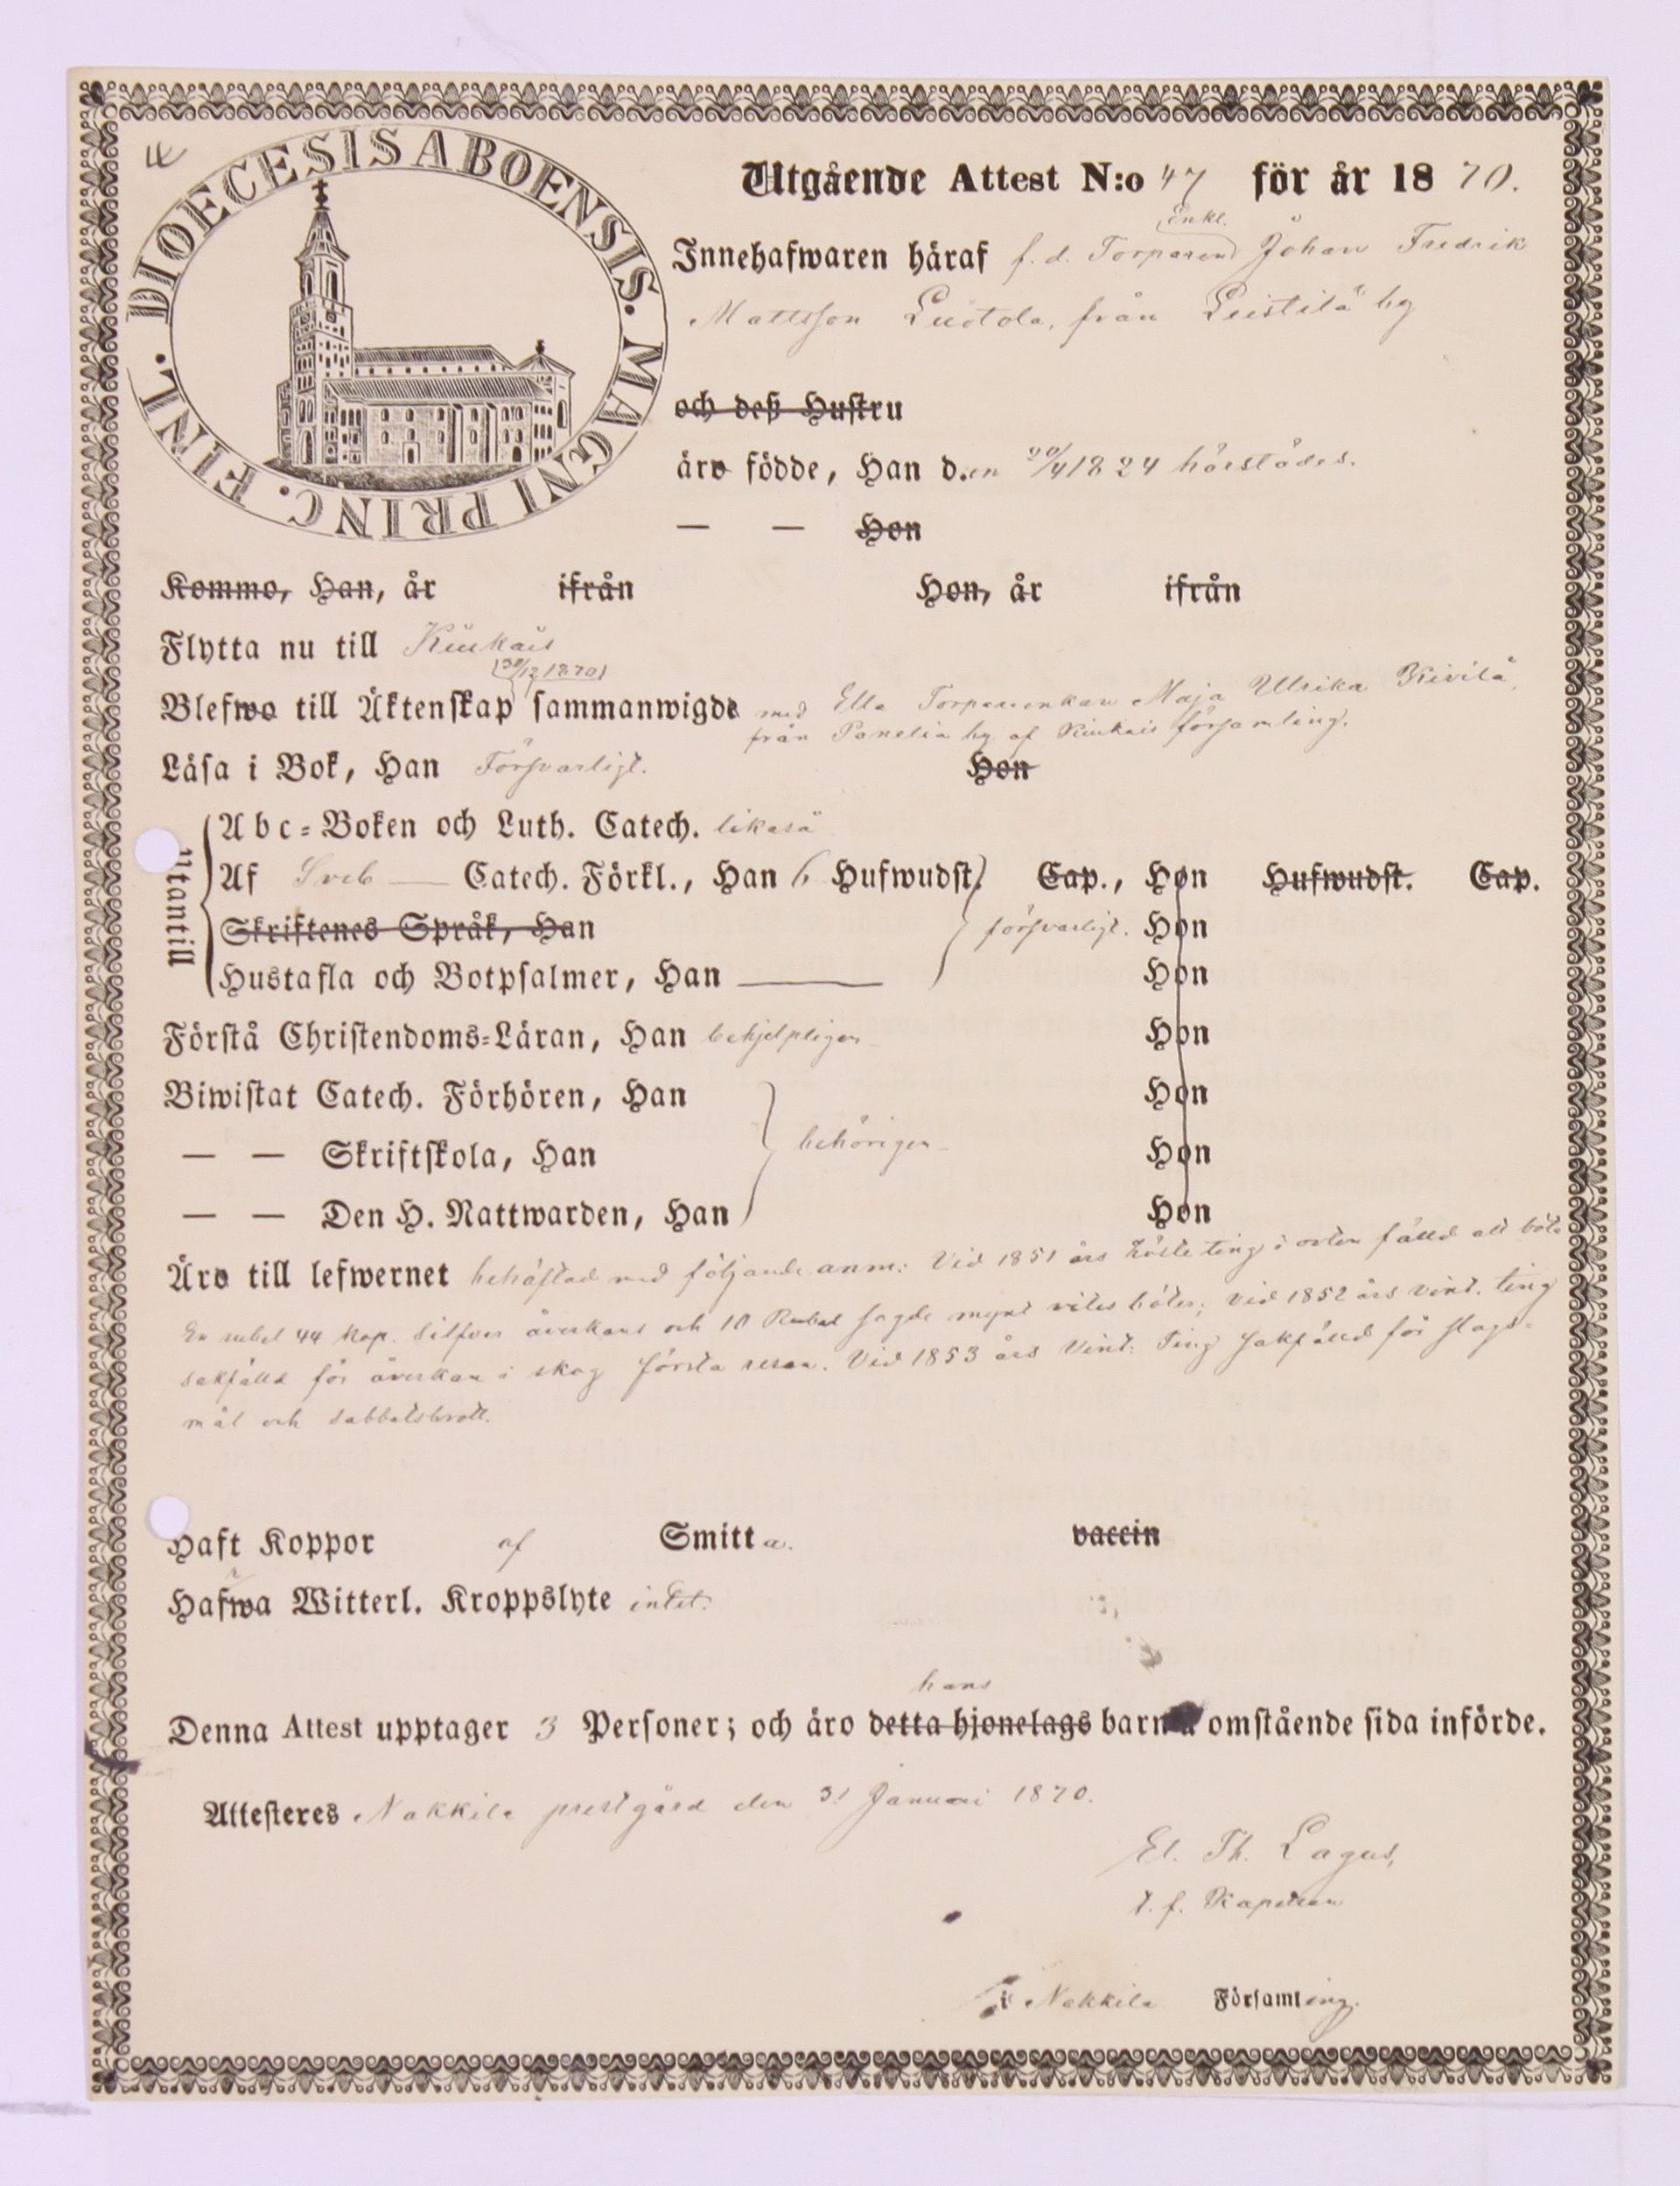 DIOECESIS ABOENSIS. MAGNI PRINC. FINL.
Utgående Attest N:o 47 för år 1870.
Enkl.
Innehafwaren häraf f. d. Torparen Johan Fredrik
Mattsson Luotola, från Leistilä by
och deß Hustru
äro födde, Han d.en 20/4 1824 härstädes.
— — Hon
Kommo, Han, år ifrån Hon, år ifrån
Flytta nu till Kiukais
(30/12 1870)
Blefwo till Äktenskap sammanwigde med Ella Torparenkan Maja Ulrika Kivilä,
från Panelia by af Kiukais församling.
Läsa i Bok, Han Försvarligt. Hon
Utantill
Abc-Boken och Luth. Catech. likaså
Af Sveb — Catech. Förkl., Han 6 Hufwudst. Cap., Hon Hufwudst. Cap.
Skriftenes Språk, Han försvarligt. Hon
Hustafla och Botpsalmer, Han Hon
Förstå Christendoms-Läran, Han behjelpligen Hon
Biwistat Catech. Förhören, Han Hon
— — Skriftskola, Han behörigen Hon
— — Den H. Nattwarden, Han Hon
Äro till lefwernet behäftad med följande anm: Vid 1851 års höste ting i orten fälld att böta
En rubel 44 kop. Silfver åverkans och 10 Rubel sagde mynt vites böter; vid 1852 års vint. ting
sakfälld för åverkan i skog första resan. Vid 1853 års Vint. Ting sakfälld för slags-
mål och sabbatsbrott.
Haft Koppor af Smitta. vaccin
Hafwa Witterl. Kroppslyte intet.
hans
Denna Attest upptager 3 Personer; och äro detta hjonelags barn å omstående sida införde.
Attesteres Nakkila prestgård den 31 Januari 1870.
El. Th. Lagus,
t. f. Kapellan
i Nakkila Församling.